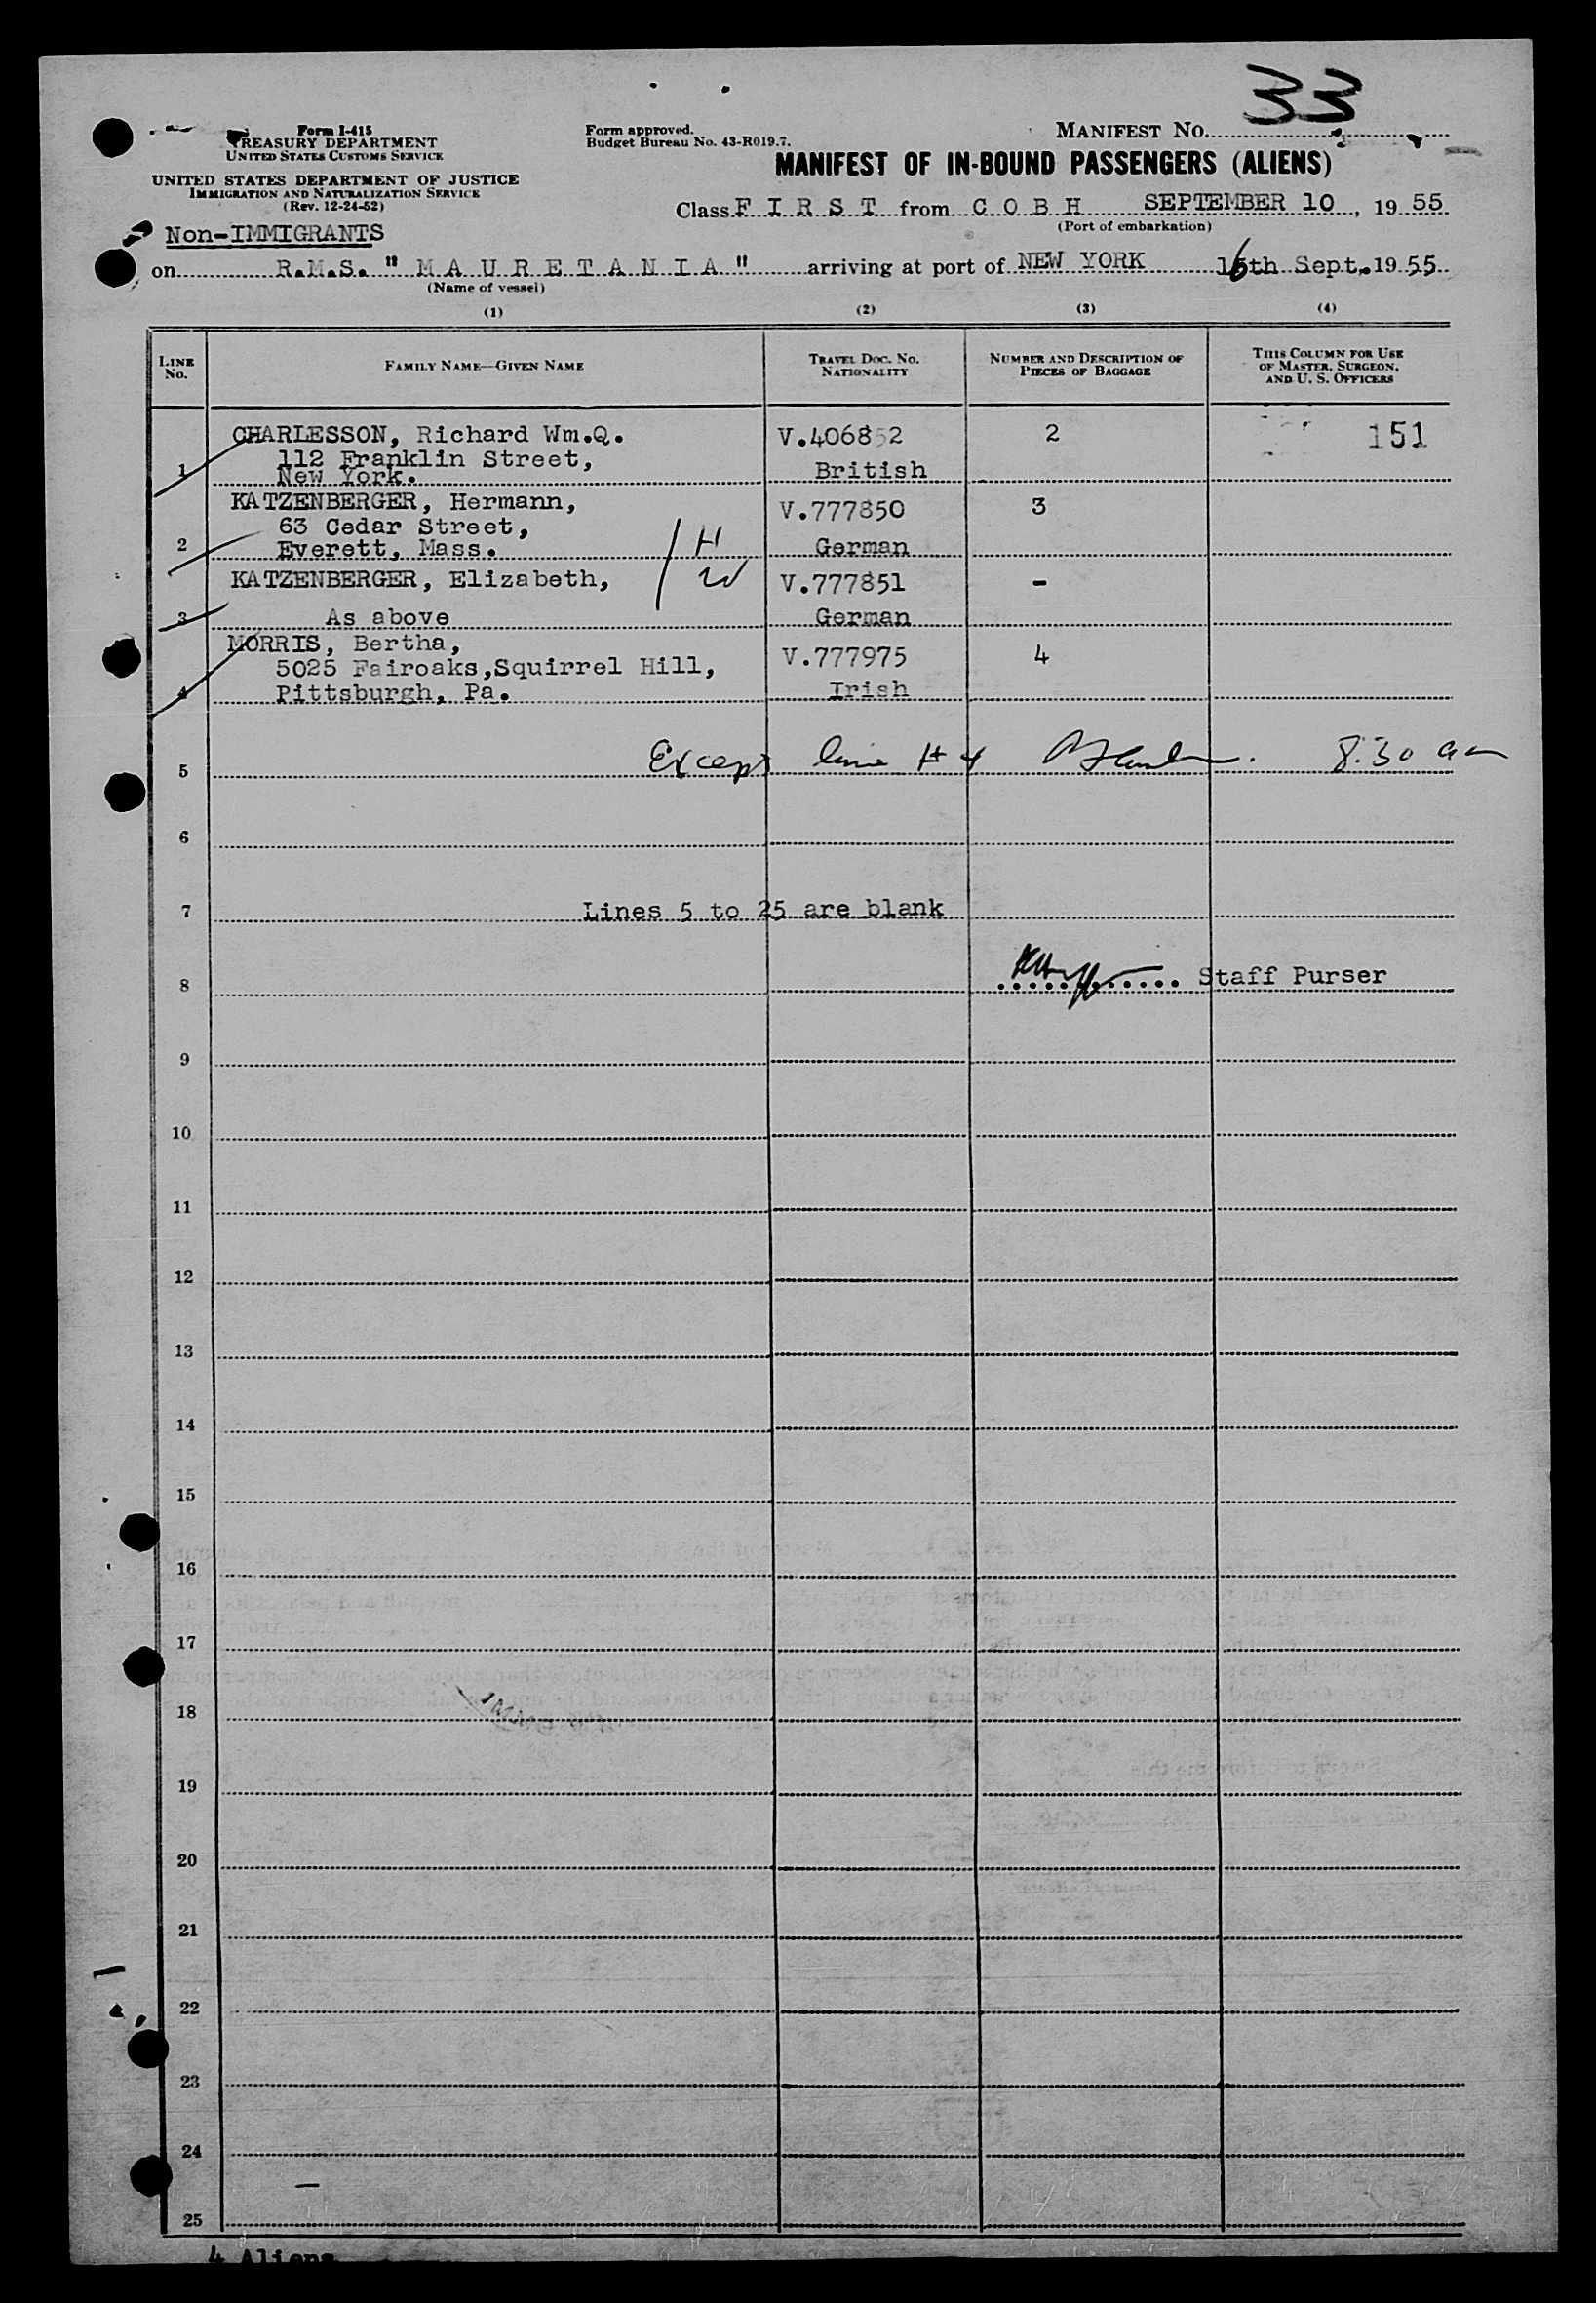 33
Form I-415
TREASURY DEPARTMENT
UNITED STATES CUSTOMS SERVICE
Form approved.
Budget Bureau No. 43-R019.7.
MANIFEST NO.
MANIFEST OF IN-BOUND PASSENGERS (ALIENS)
UNITED STATES DEPARTMENT OF JUSTICE
IMMIGRATION AND NATURALIZATION SERVICE
(Rev. 12-24-52)
Class F I R S T from C O B H SEPTEMBER 10, 19 55
(Port of embarkation)
Non-IMMIGRANTS
on R.M.S. " M A U R E T A N I A " arriving at port of NEW YORK 16th Sept. 19 55
(Name of vessel)
(1) (2) (3) (4)
LINE No. FAMILY NAME—GIVEN NAME TRAVEL DOC. NO. NATIONALITY NUMBER AND DESCRIPTION OF PIECES OF BAGGAGE THIS COLUMN FOR USE OF MASTER, SURGEON, AND U. S. OFFICERS
CHARLESSON, Richard Wm.Q. V.406852 2 151
112 Franklin Street,
1 New York. British
KATZENBERGER, Hermann, V.777850 3
63 Cedar Street,
2 Everett, Mass. H German
KATZENBERGER, Elizabeth, W V.777851 -
3 As above German
MORRIS, Bertha,
5025 Fairoaks,Squirrel Hill, V.777975 4
4 Pittsburgh, Pa. Irish
5 Except line # 4 8:30 am
6
7 Lines 5 to 25 are blank
8 Staff Purser
9
10
11
12
13
14
15
16
17
18
19
20
21
22
23
24
25
4 Aliens